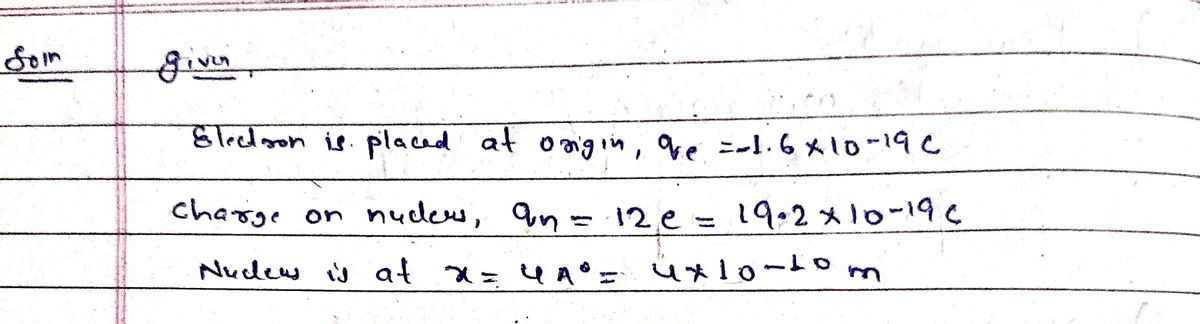 Soln given,
Electron is placed at origin, qe = -1.6 × 10-19 C
charge on nucleus, qn = 12 e = 19.2 × 10-19 C
Nucleus is at x = 4 A° = 4 × 10-10 m